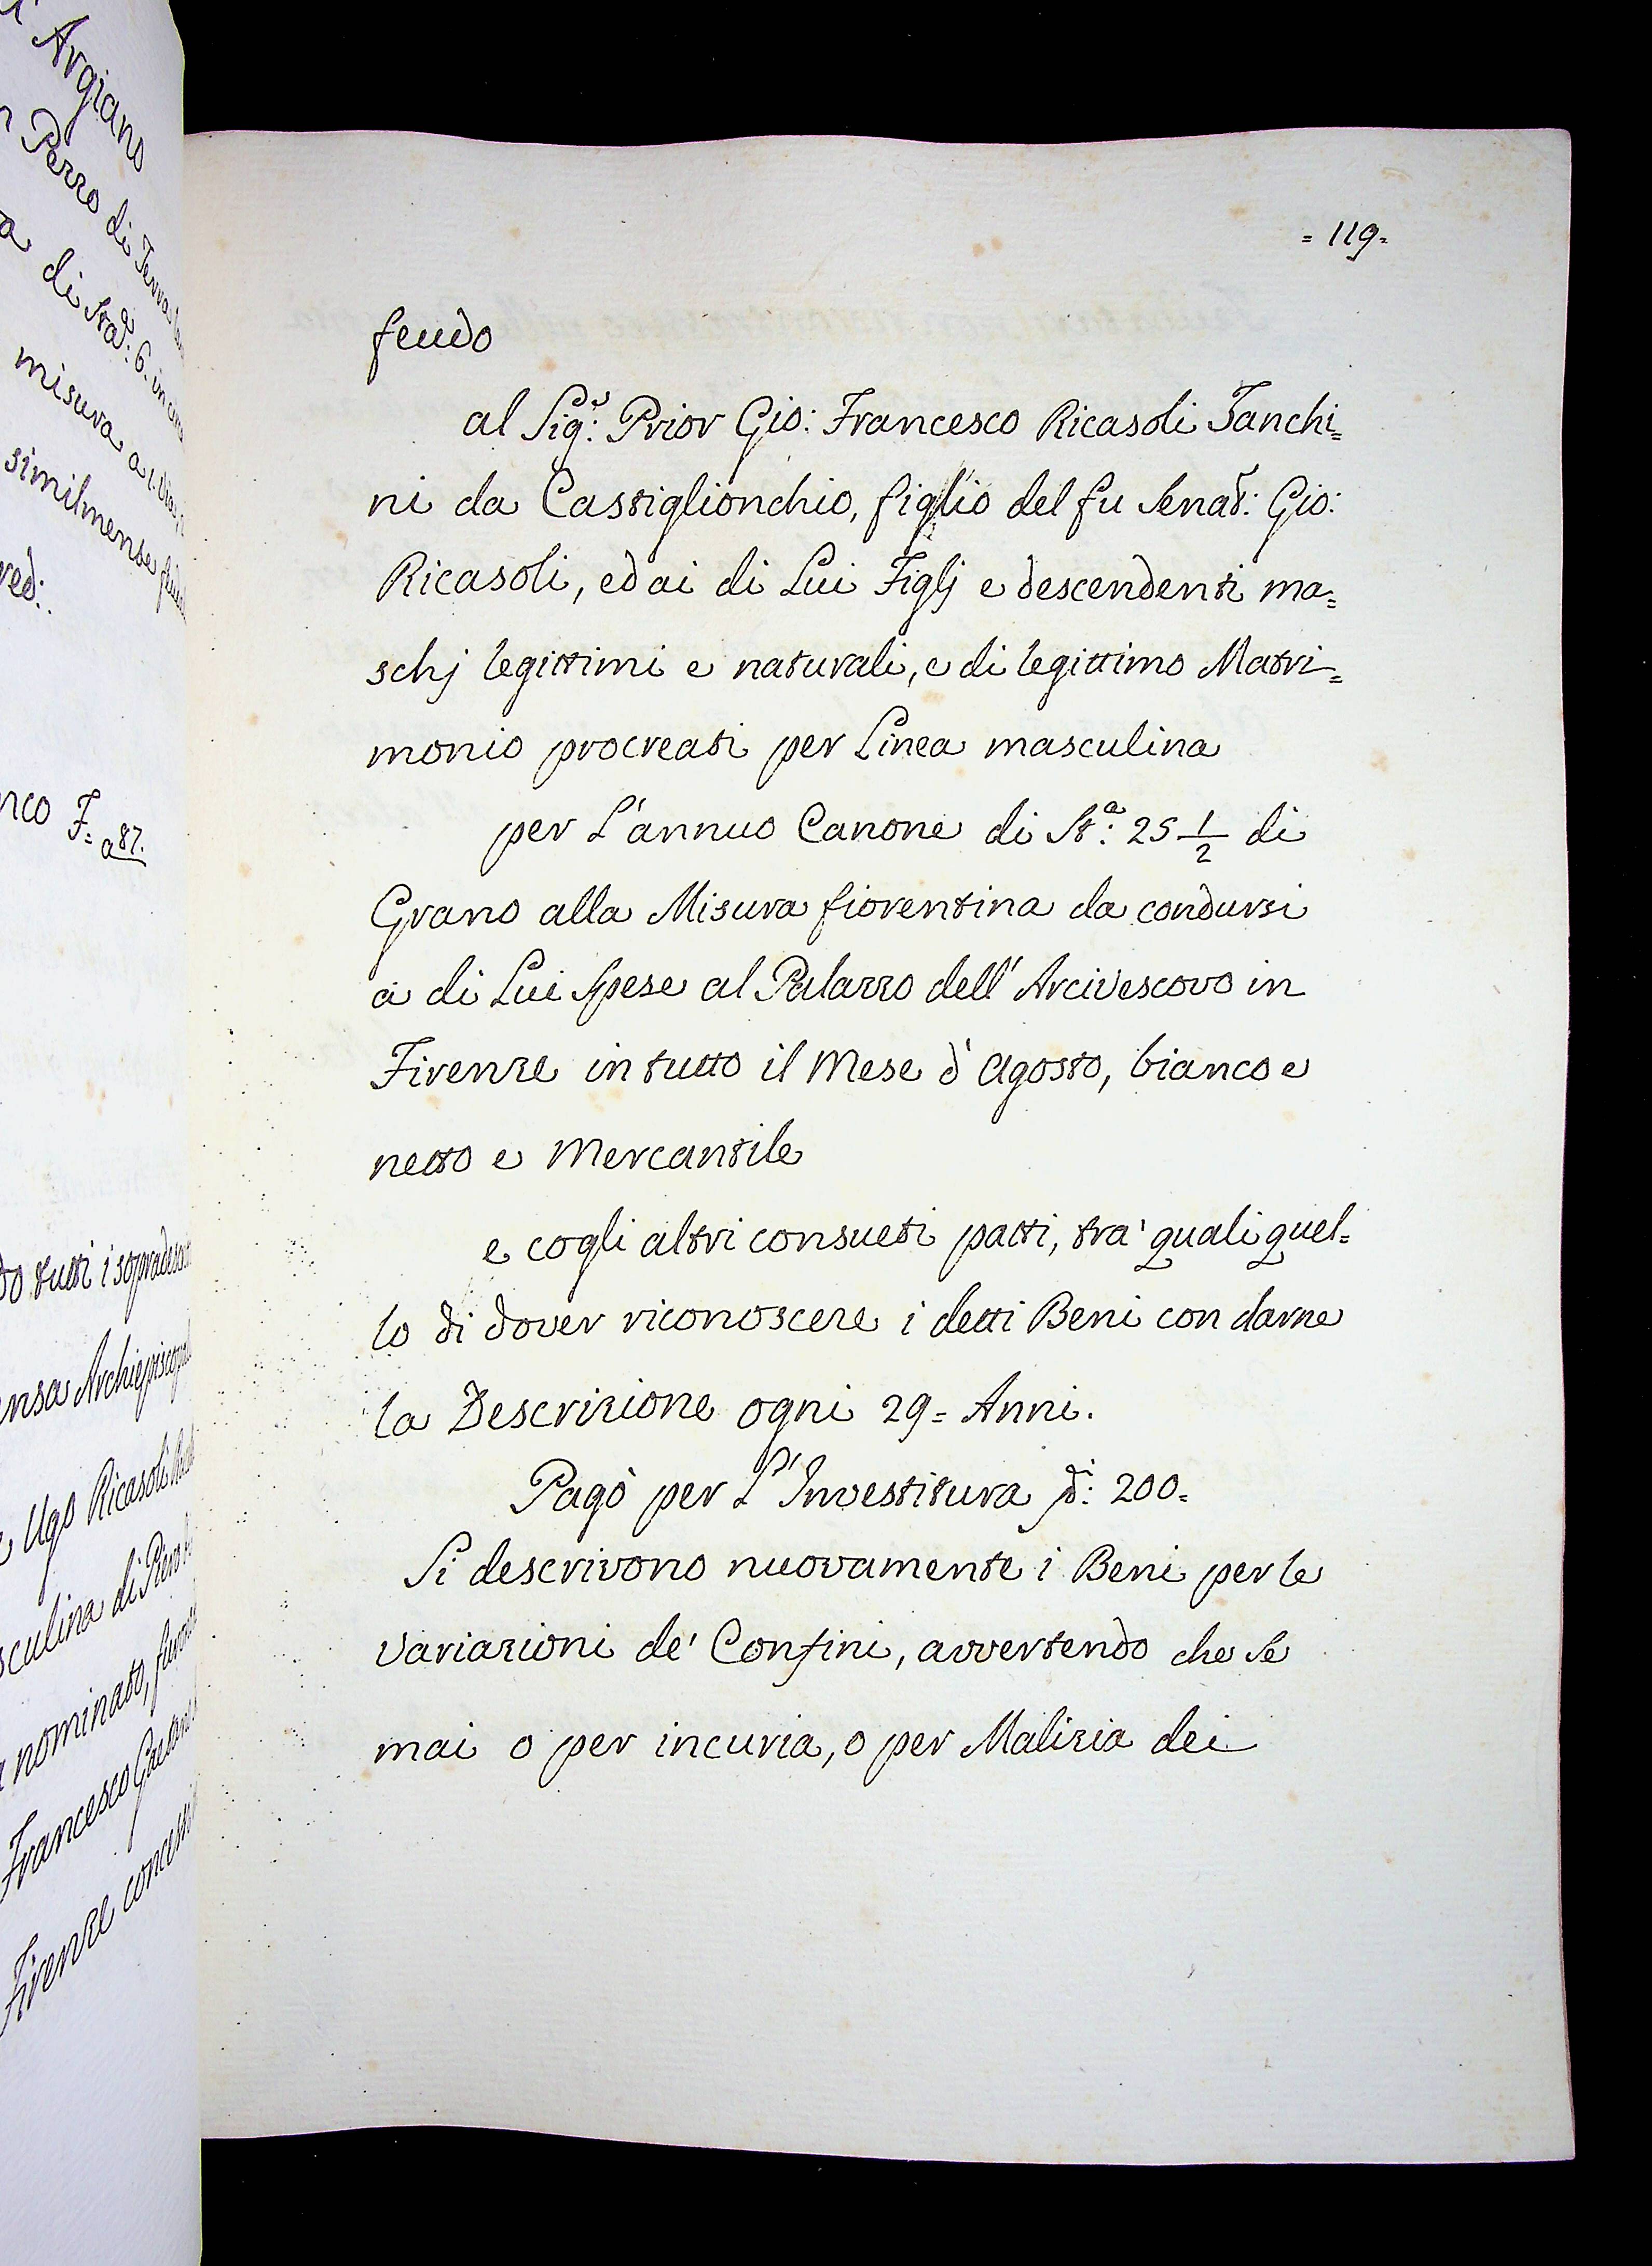 Argiano
Pezzo di Terra
di Sta: 6. in
misura a
similmente
red:
nco F= a 87.
tutti i sopradescr
ensa Archiepiscopal
Ugo Ricasoli
sculina di Piero
nominato,
Francesco Gaetano
Firenze
= 119=
feudo
al Sig:r Prior Gio: Francesco Ricasoli Zanchi=
ni da Castiglionchio, figlio del fu Senat: Gio:
Ricasoli, ed ai di Lui Figlj e descendenti ma=
schj legittimi e naturali, e di legittimo Matri=
monio procreati per Linea masculina
per L'annuo Canone di St:a 25 1/2 di
Grano alla Misura fiorentina da condursi
a di Lui Spese al Palazzo dell' Arcivescovo in
Firenze in tutto il Mese d' Agosto, bianco e
netto e Mercantile
e cogli altri consueti patti, tra' quali quel=
lo di dover riconoscere i detti Beni con darne
la Descrizione ogni 29= Anni.
Pagò per L'Investitura 200=
Si descrivono nuovamente i Beni per le
Variazioni de' Confini, avvertendo che se
mai o per incuria, o per Malizia dei